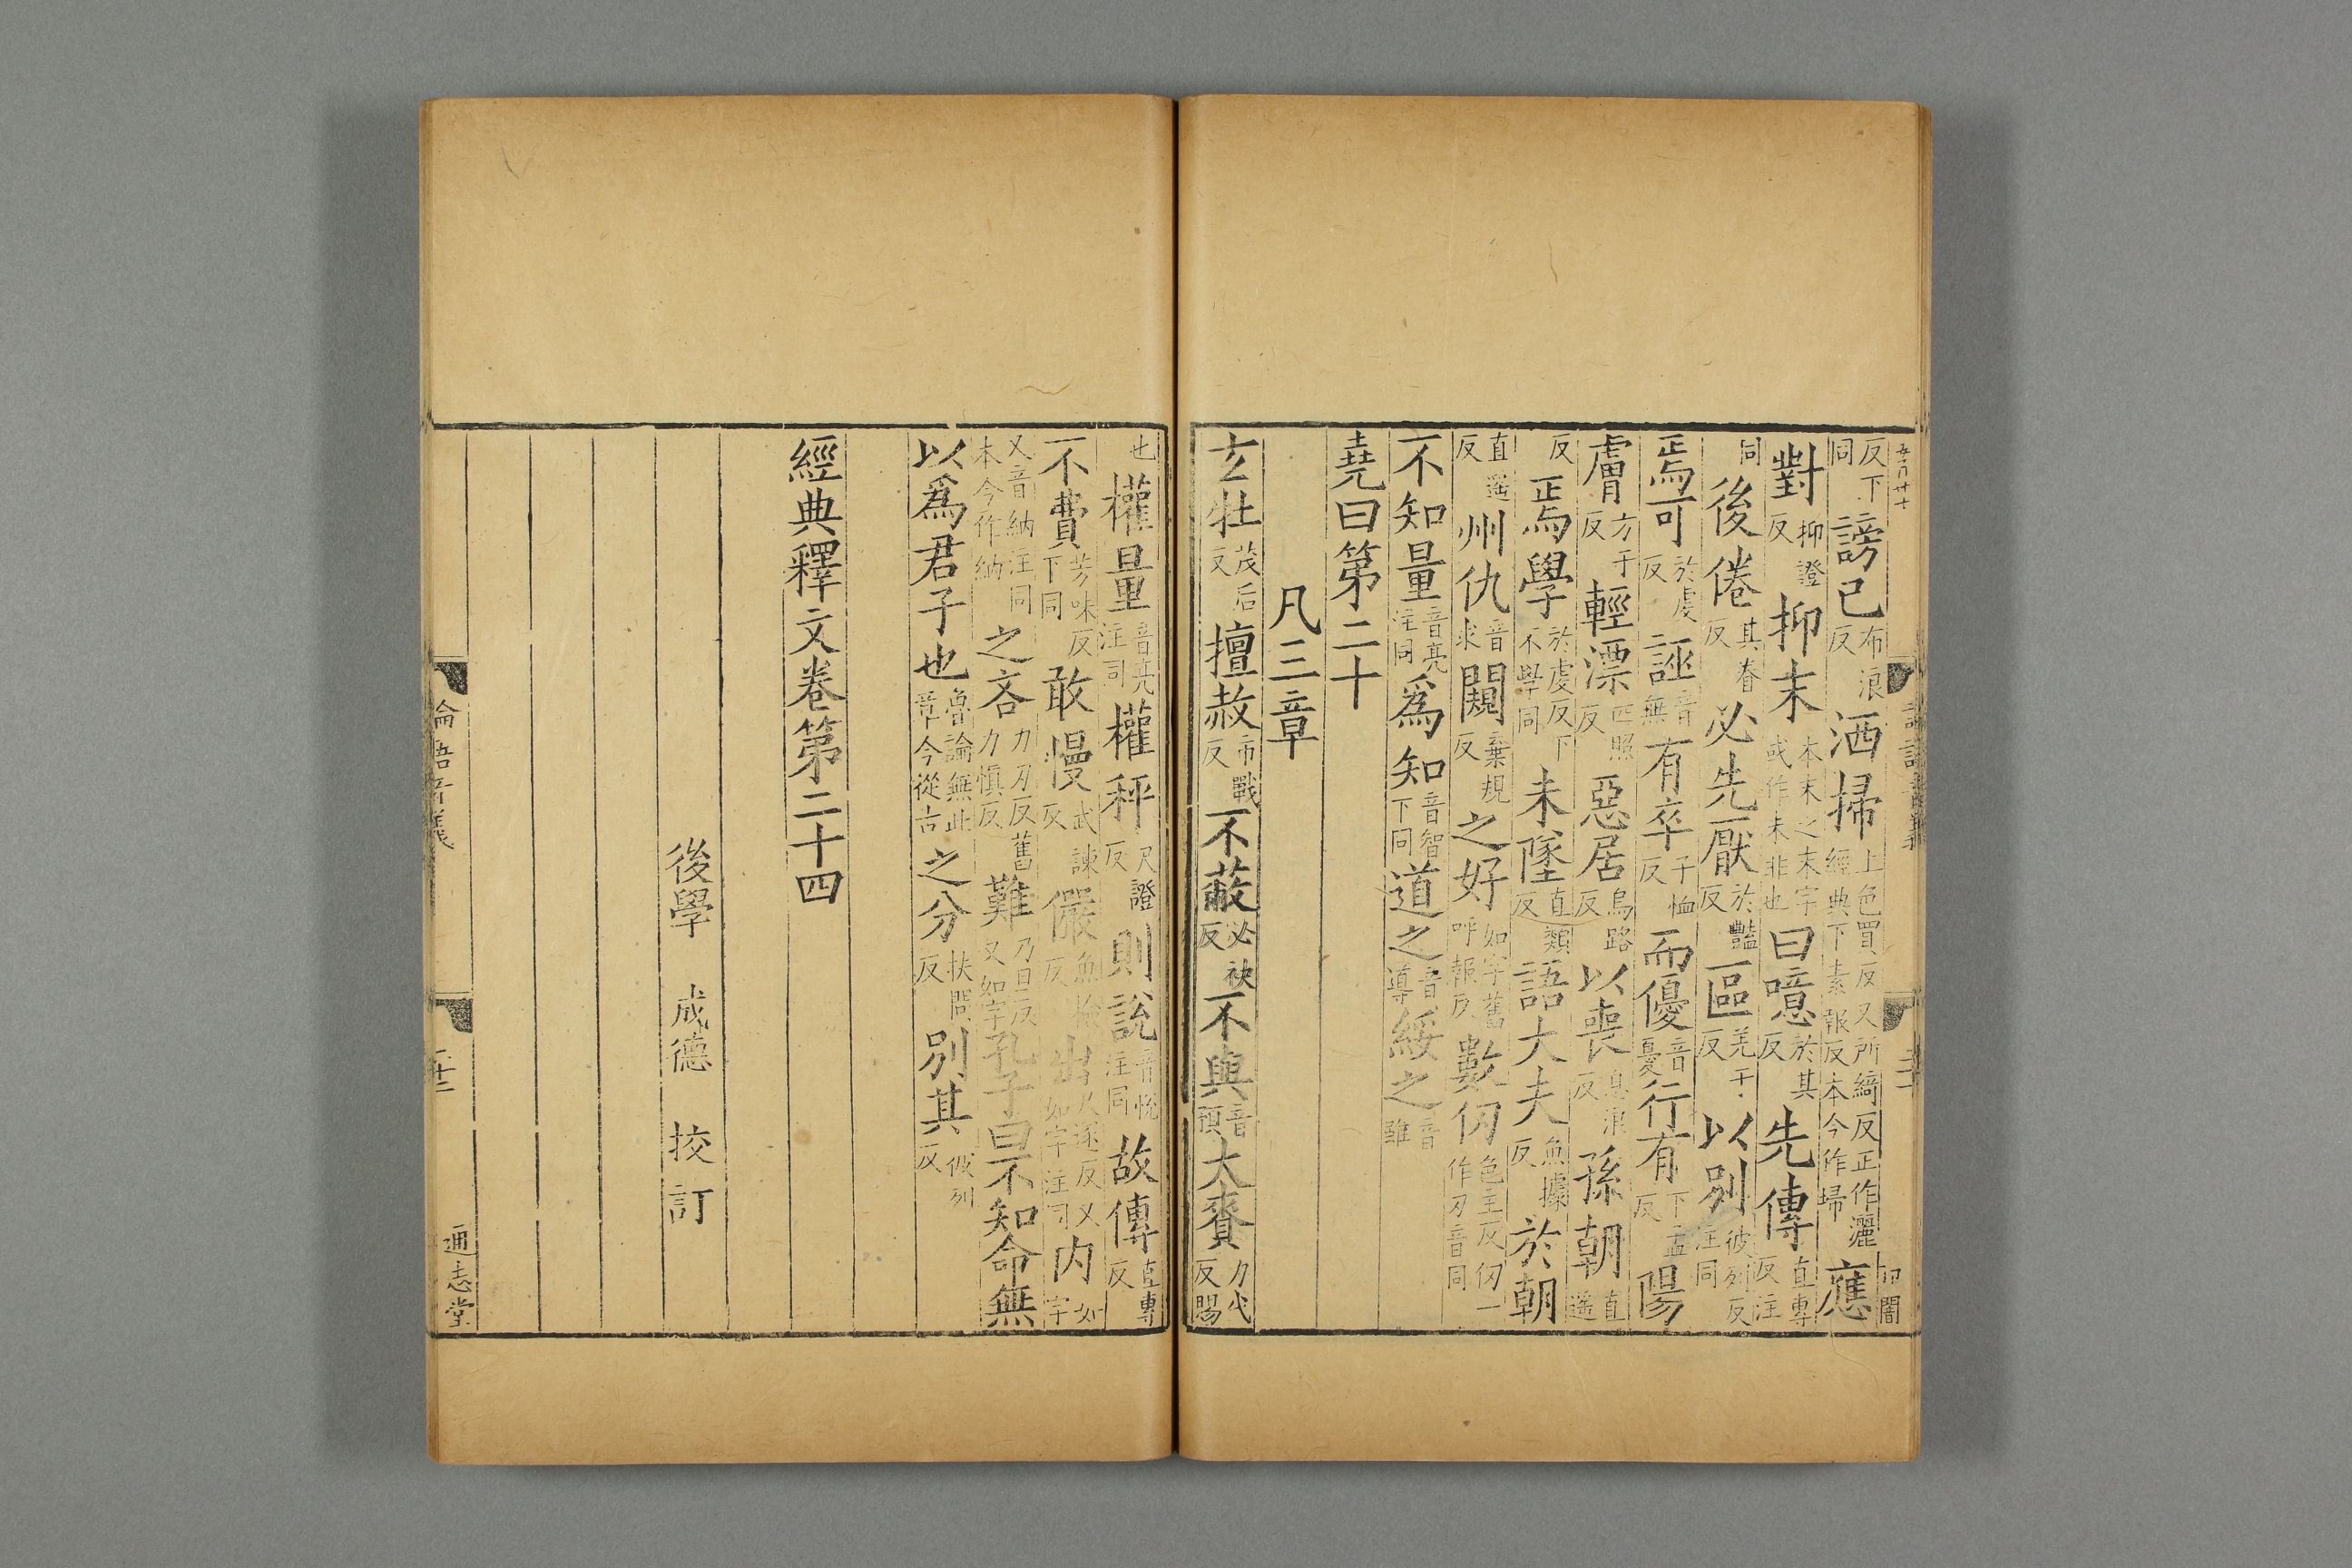 反下同謗已布浪反洒掃上色買反又所綺反正作灑經典下素報反本今作埽應
對抑證反抑末本末之末字或作未非也曰噫於其反先傳直專反注
同後倦其眷反必先厭於豔反區羌于反以別彼列反注同
焉可於虔反誣音無有卒子恤反而優音憂行有下孟反陽
膚方于反輕漂匹照反惡居烏路反以喪息浪反孫朝直遥
反焉學於虔反下不學同未墜直類反語大夫魚據反於朝
直遥反州仇音求闚棄規反之好如字舊呼報反數仞色主反仞一作刃音同
不知量音亮注同爲知音智下同道之音導綏之音雖
堯曰第二十
凡三章
玄牡茂后反擅赦市戰反不蔽必袂反不與音預大賚力代反賜
也權量音亮注同權秤尺證反則說音悅注同故傳直專反
不費芳味反下同敢慢武諫反儼魚檢反出尺遂反又如字注同内如字
又音納注同本今作納之吝力刃反舊力慎反難乃旦反又如字孔子曰不知命無
以爲君子也魯論無此章今從古之分扶問反別其彼列反
經典釋文卷第二十四
後學 成德 挍訂
論語音義
通志堂